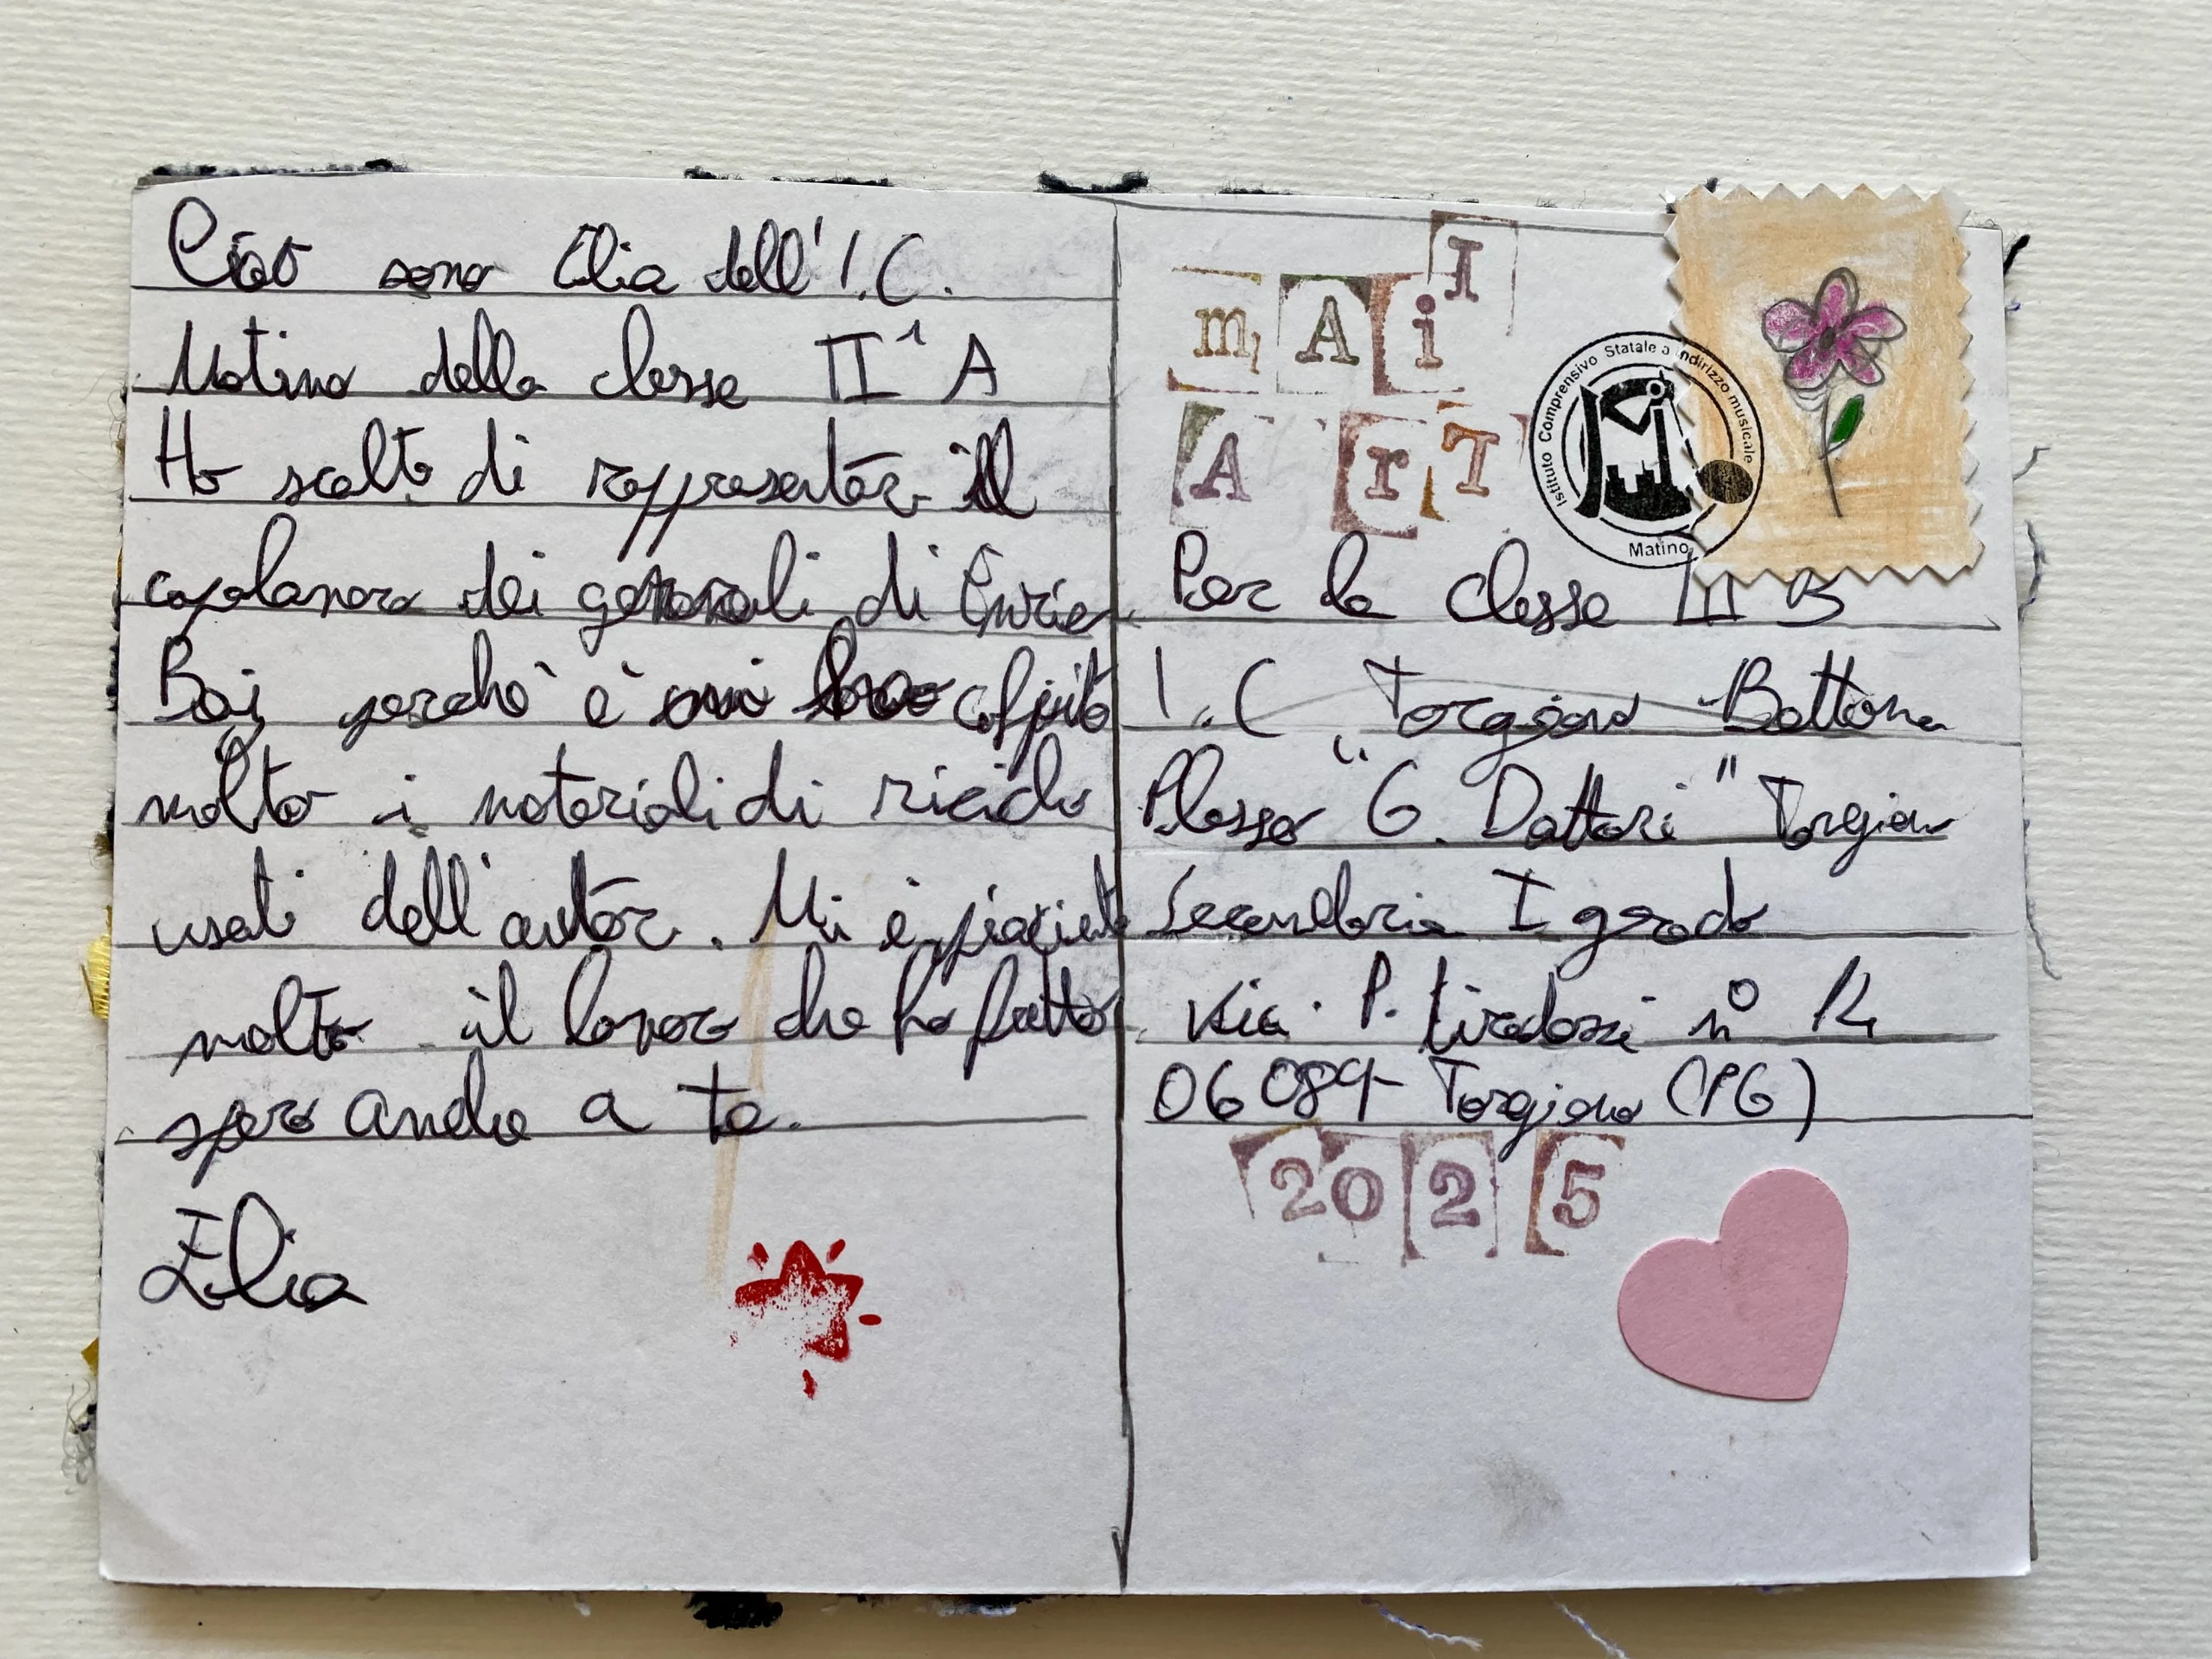 Ciao sono Elia dell'I.C.
Matino della classe II^A
Ho scelto di rappresentare il
capolavoro dei generali di Enrico
Baj perchè è mi colpito
molto i materiali di riciclo
usati dell'autore. Mi è piaciuto
molto il lavoro che ho fatto
spero anche a te.
Elia
mAil
ArT
Istituto Comprensivo Statale a indirizzo musicale
Matino
Per la classe III B
I.C Torgiano Bettona
Plesso "G. Dottori" Torgiano
Secondaria I grado
Via. P. tiradossi n°
06084 Torgiano (PG)
2025